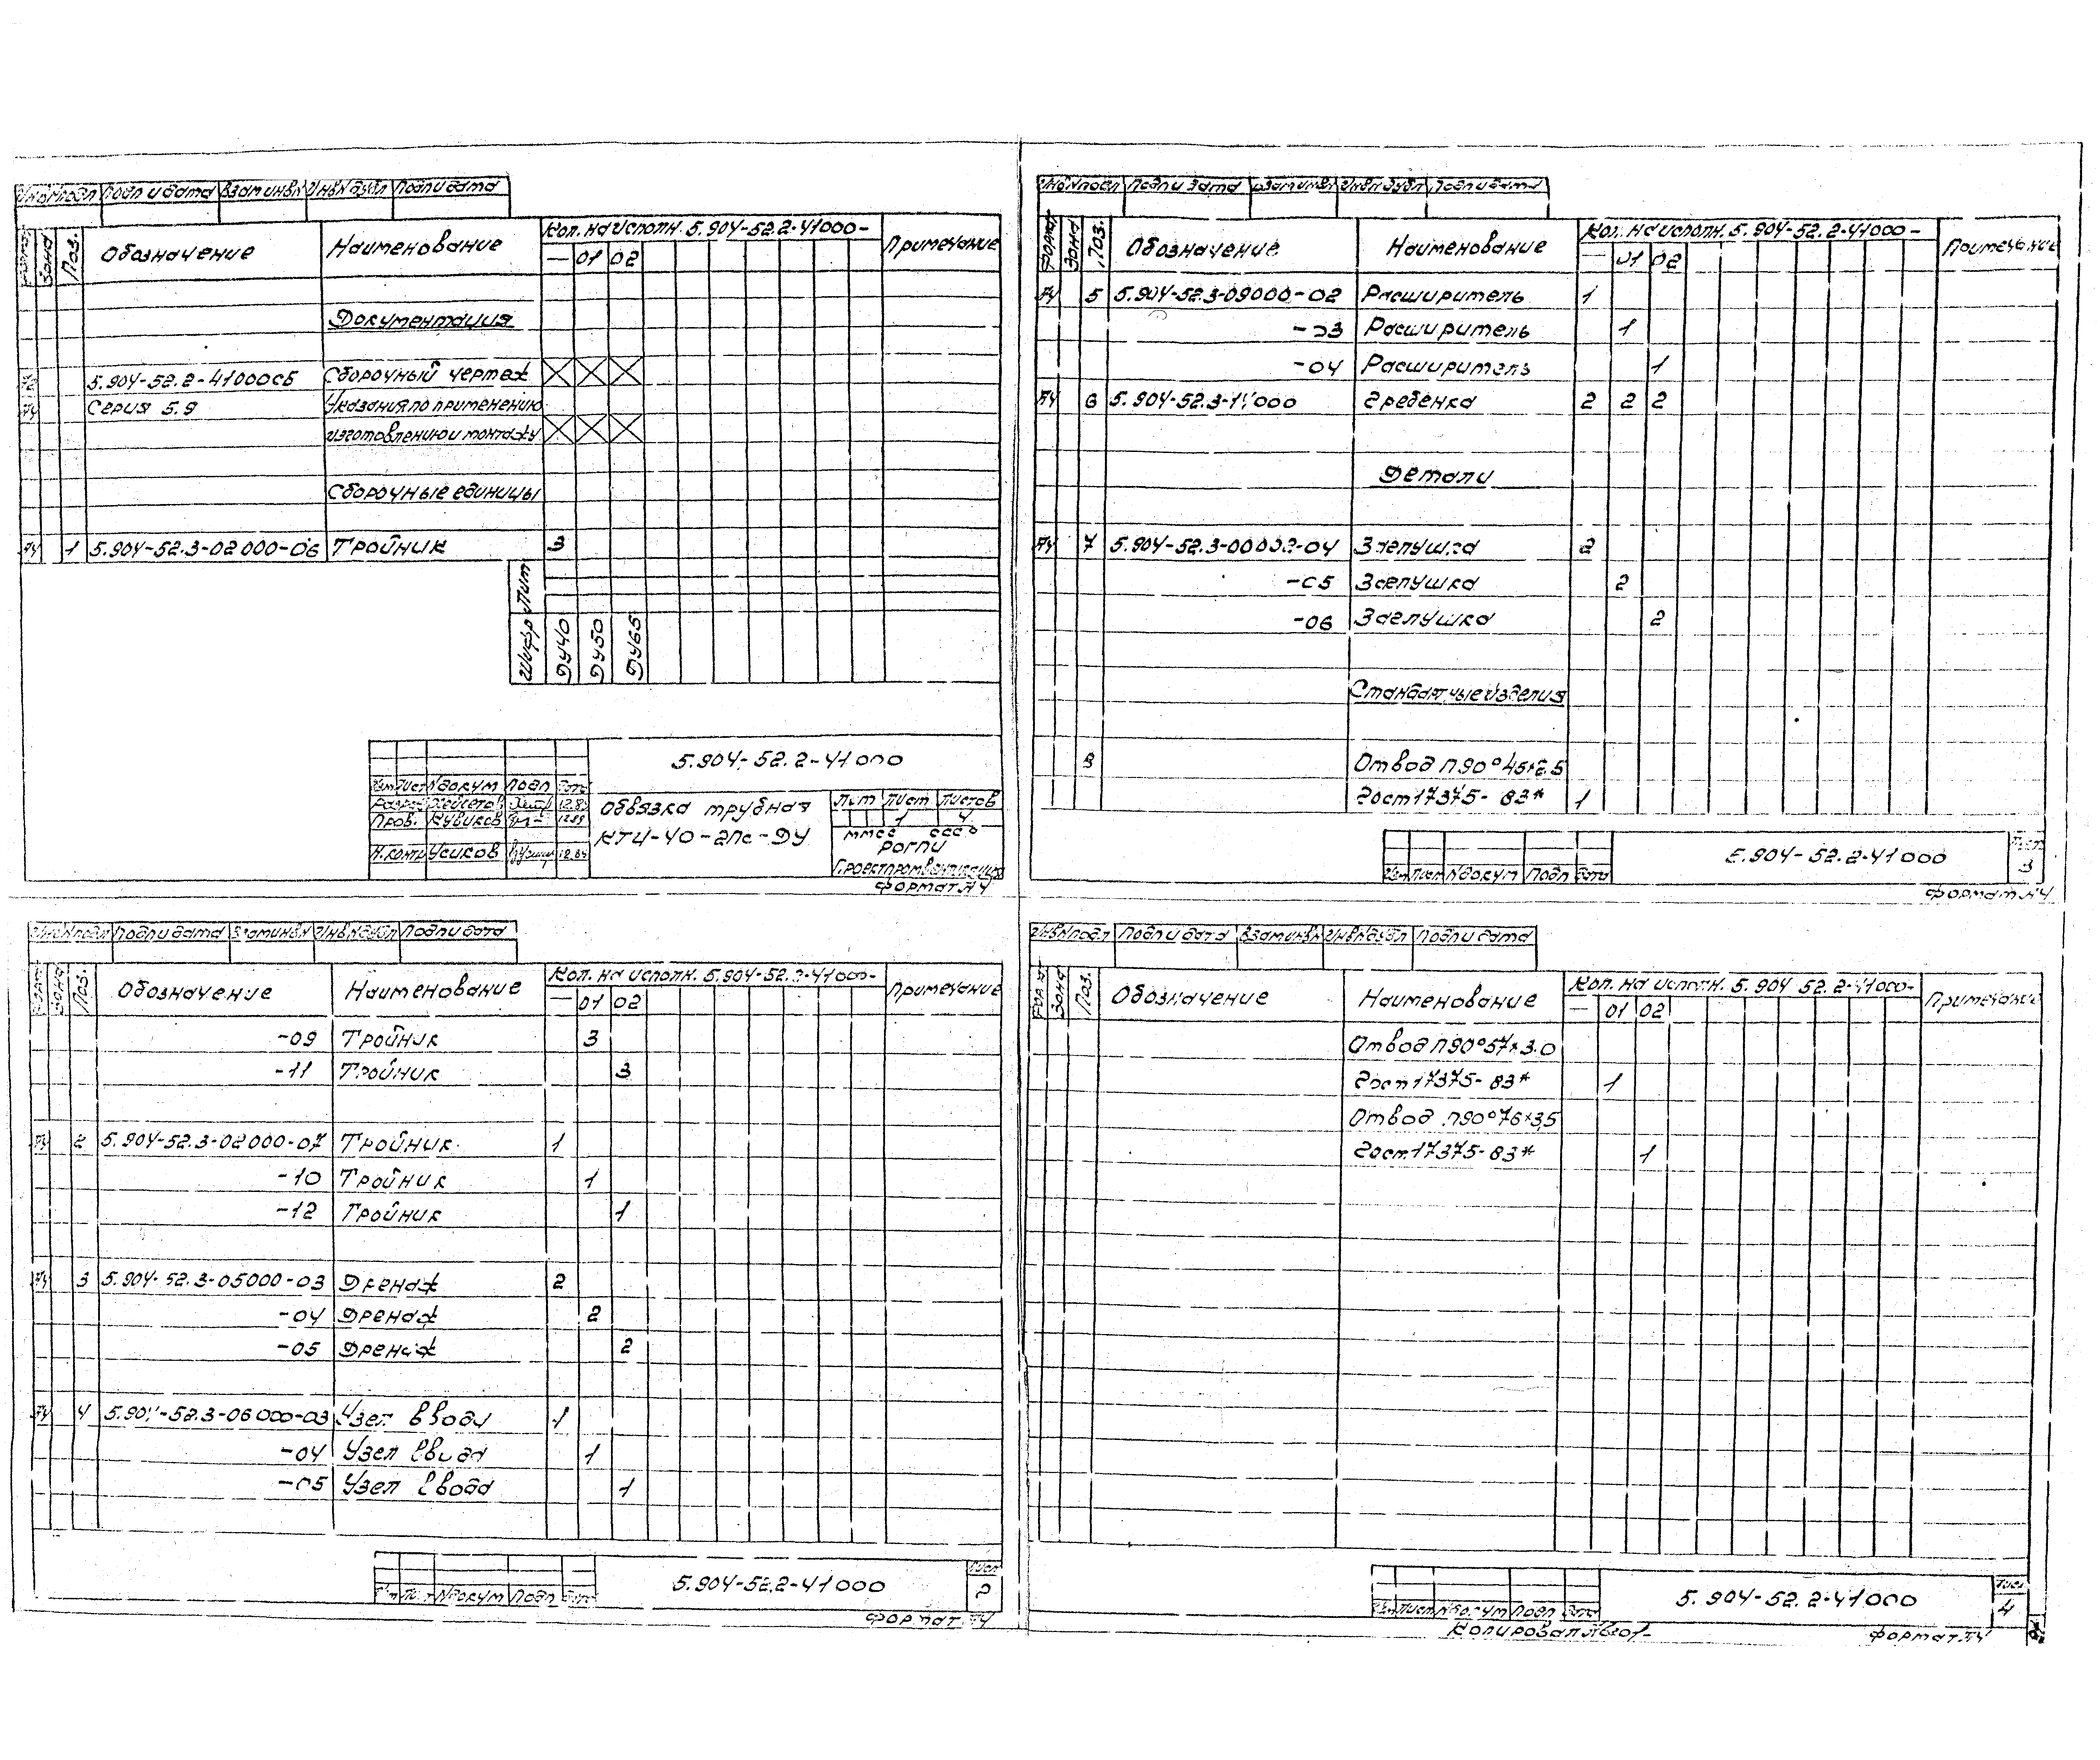 Подп и дата Взам инв N Инв N дубл Подп и дата
Зона Поз. Обозначение Наименование Кол. на исполн. 5.904-52.2-41000- Примечание
— 01 02
Документация
5.904-52.2-41000СБ Сборочный чертеж
Серия 5.9 Указания по применению
изготовлению и монтажу
Сборочные единицы
А4 1 5.904-52.3-02000-06 Тройник 3
Лит
Шифр Ду40 Ду50 Ду65
5.904-52.2-41000
Лист N докум Подп Дата
Пров.
Н.контр Усиков
Обвязка трубная
КТЦ-40-2пс-Ду
Лит Лист Листов
1 4
ММСС СССР
Формат А4
Подп и дата Взам инв N Инв N дубл Подп и дата
Зона Поз. Обозначение Наименование Кол. на исполн. 5.904-52.2-41000- Примечание
— 01 02
-09 Тройник 3
-11 Тройник 3
А4 2 5.904-52.3-02000-07 Тройник 1
-10 Тройник 1
-12 Тройник 1
А4 3 5.904-52.3-05000-03 Дренаж 2
-04 Дренаж 2
-05 Дренаж 2
А4 4 5.904-52.3-06000-03 Узел ввода 1
-04 Узел ввода 1
-05 Узел ввода 1
N докум Подп Дата 5.904-52.2-41000 Лист
2
Формат А4
Подп и дата Взам инв N Инв N дубл Подп и дата
Формат Зона Поз. Обозначение Наименование Кол. на исполн. 5.904-52.2-41000- Примечание
— 01 02
А4 5 5.904-52.3-09000-02 Расширитель 1
-03 Расширитель 1
-04 Расширитель 1
А4 6 5.904-52.3-11000 Гребенка 2 2 2
Детали
А4 7 5.904-52.3-00002-04 Заглушка 2
-05 Заглушка 2
-06 Заглушка 2
Стандартные изделия
8 Отвод П90°45×2.5
Гост 17375-83* 1
Лист N докум Подп Дата 5.904-52.2-41000 Лист
3
Формат А4
Подп и дата Взам инв N Инв N дубл Подп и дата
Зона Поз. Обозначение Наименование Кол. на исполн. 5.904-52.2-41000- Примечание
— 01 02
Отвод П90°57×3.0
Гост 17375-83* 1
Отвод П90°76×3,5
Гост 17375-83* 1
Лист N докум Подп Дата 5.904-52.2-41000 Лист
4
Копировал
Формат А4